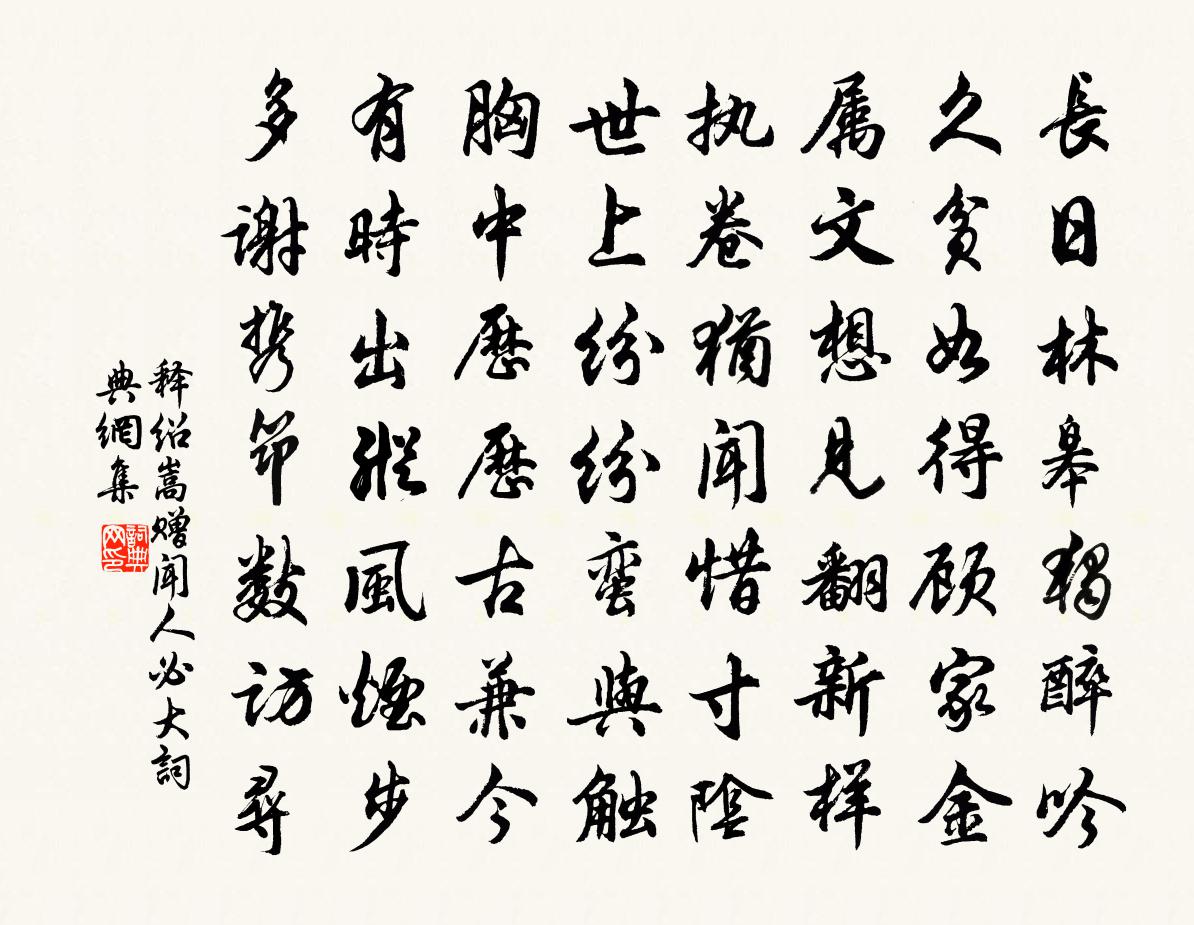 長日林皋獨醉吟
久貧如得顾家金
属文想見翻新样
执卷猶聞惜寸陰
世上纷纷蛮與触
胸中歷歷古兼今
有時出縱風煙步
多謝携筇數訪尋
释绍嵩赠聞人必大詞
典網集
詞典网印